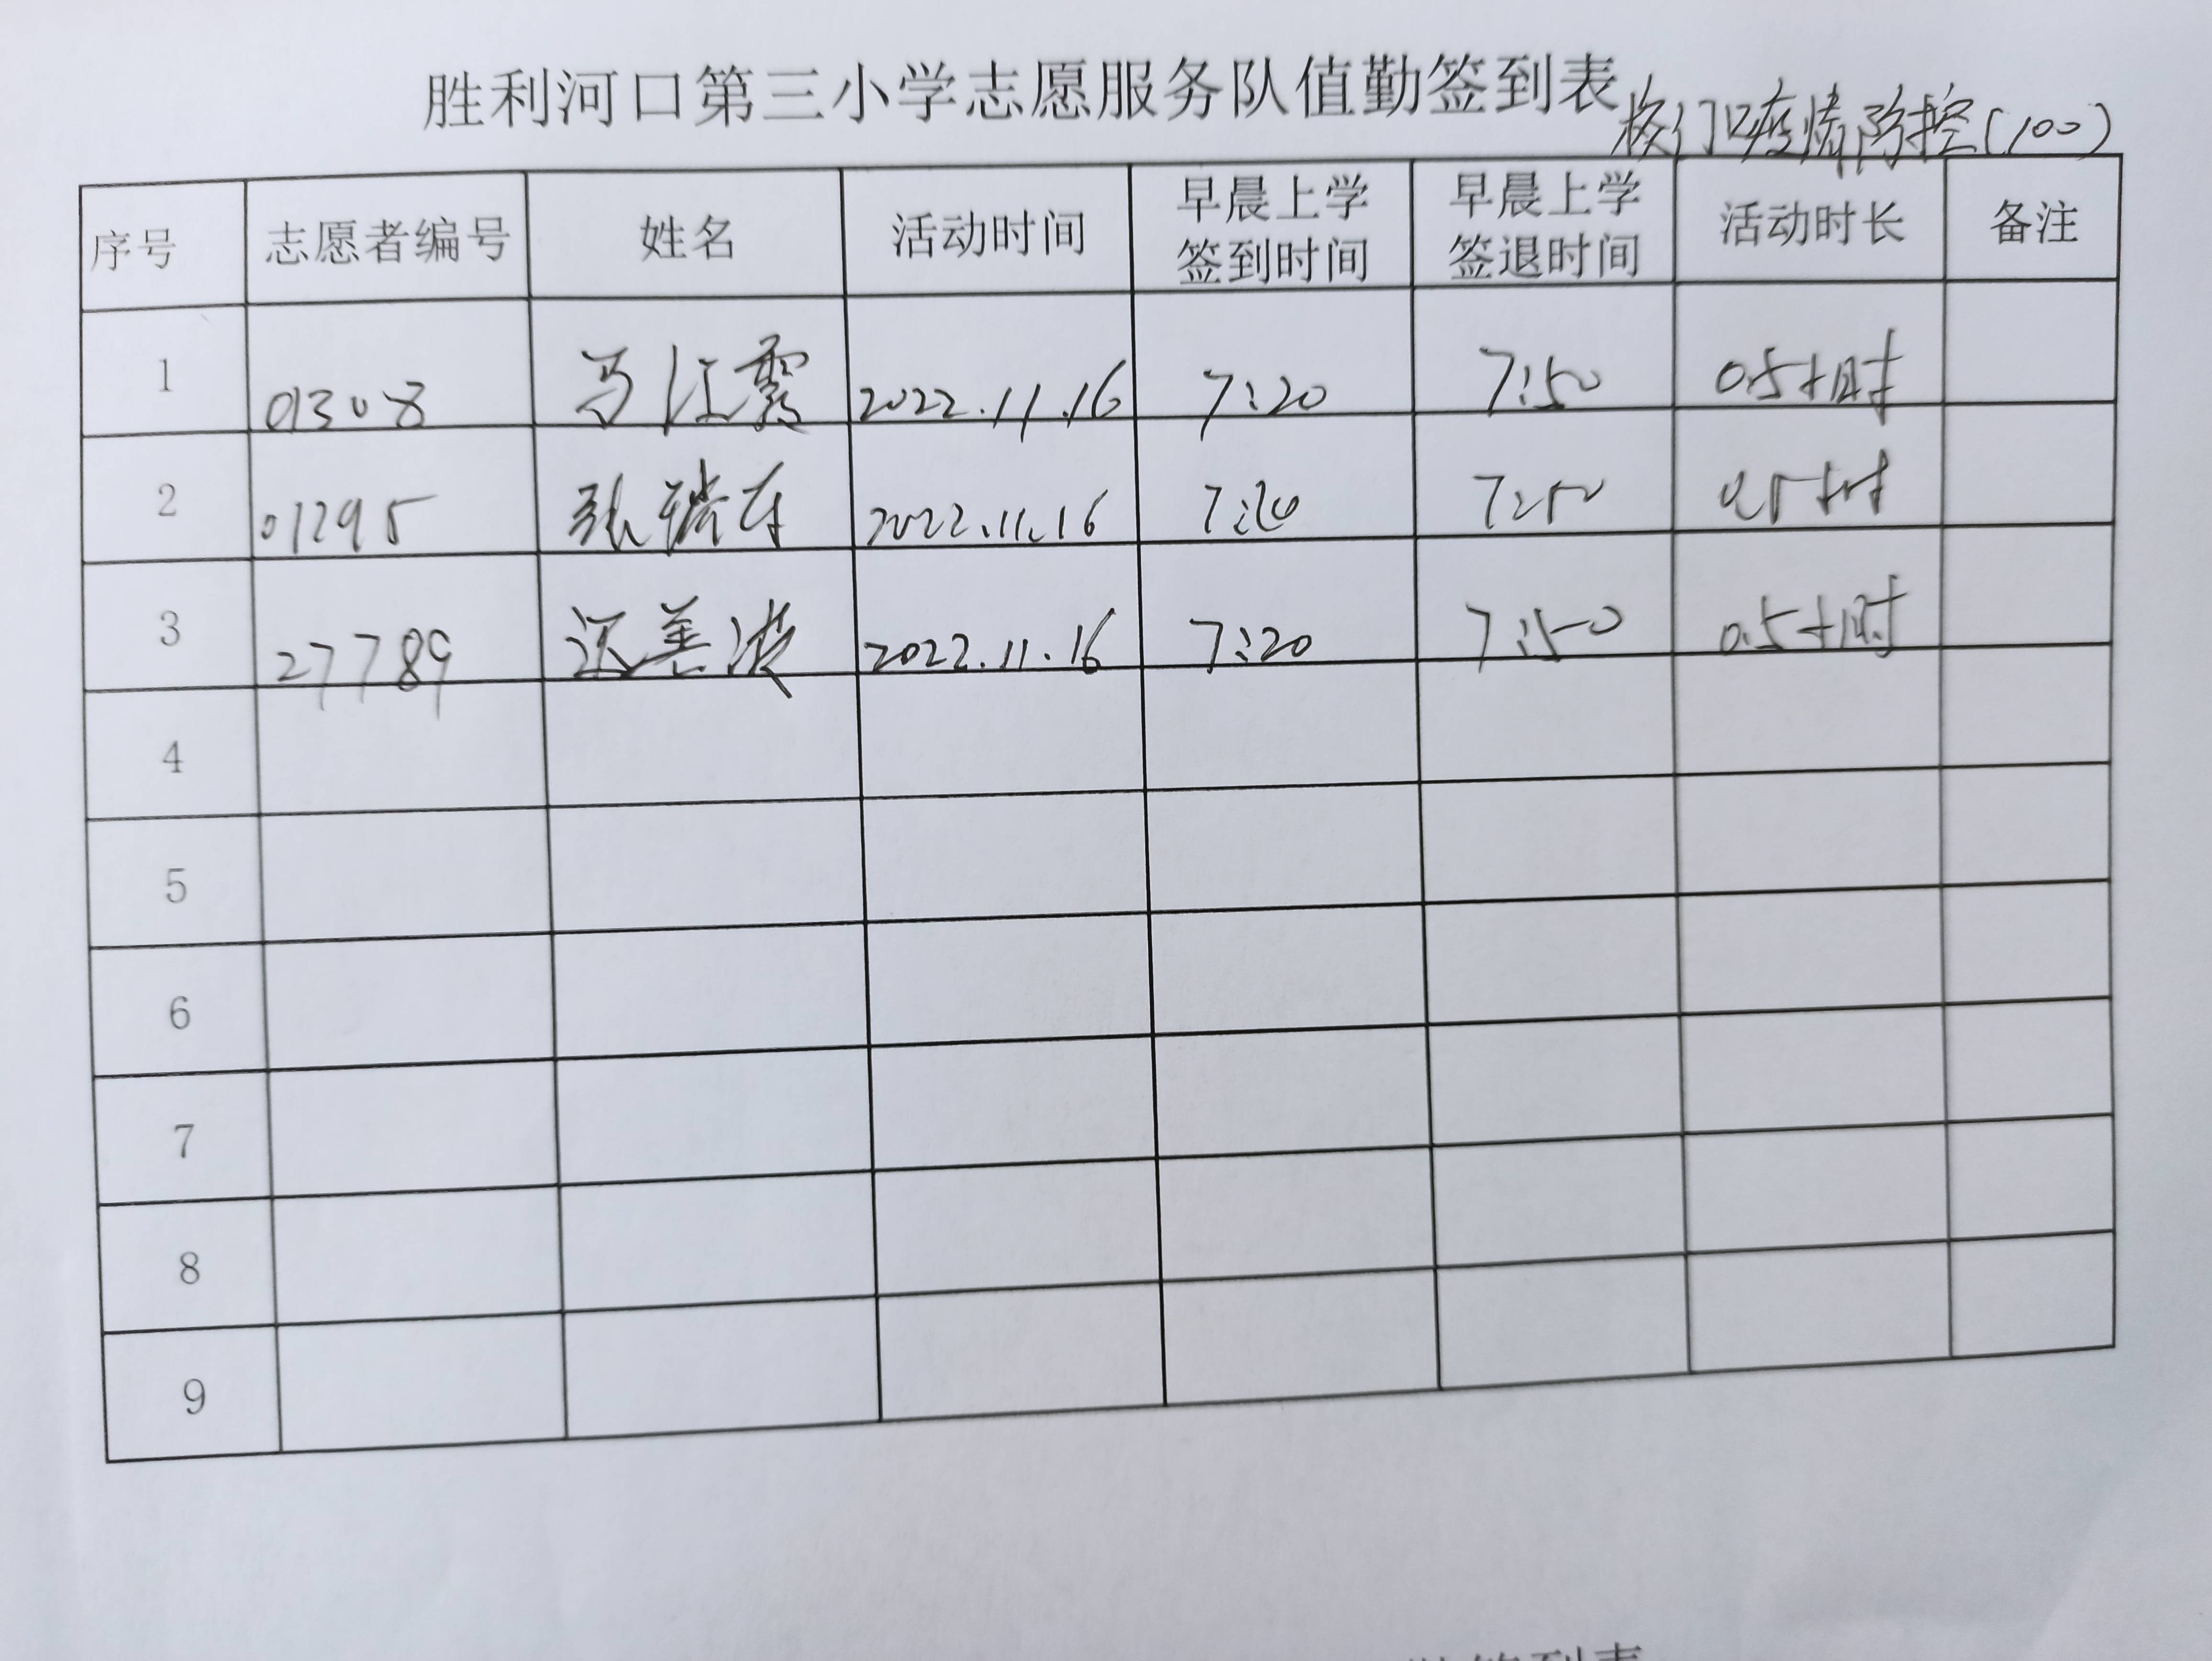 胜利河口第三小学志愿服务队值勤签到表
校门口疫情防控(100)
序号 志愿者编号 姓名 活动时间 早晨上学签到时间 早晨上学签退时间 活动时长 备注
1 01308 马红霞 2022.11.16 7:20 7:50 0.5小时
2 01295 张瑞 2022.11.16 7:20 7:50 0.5小时
3 27789 善波 2022.11.16 7:20 7:50 0.5小时
4
5
6
7
8
9
签到表